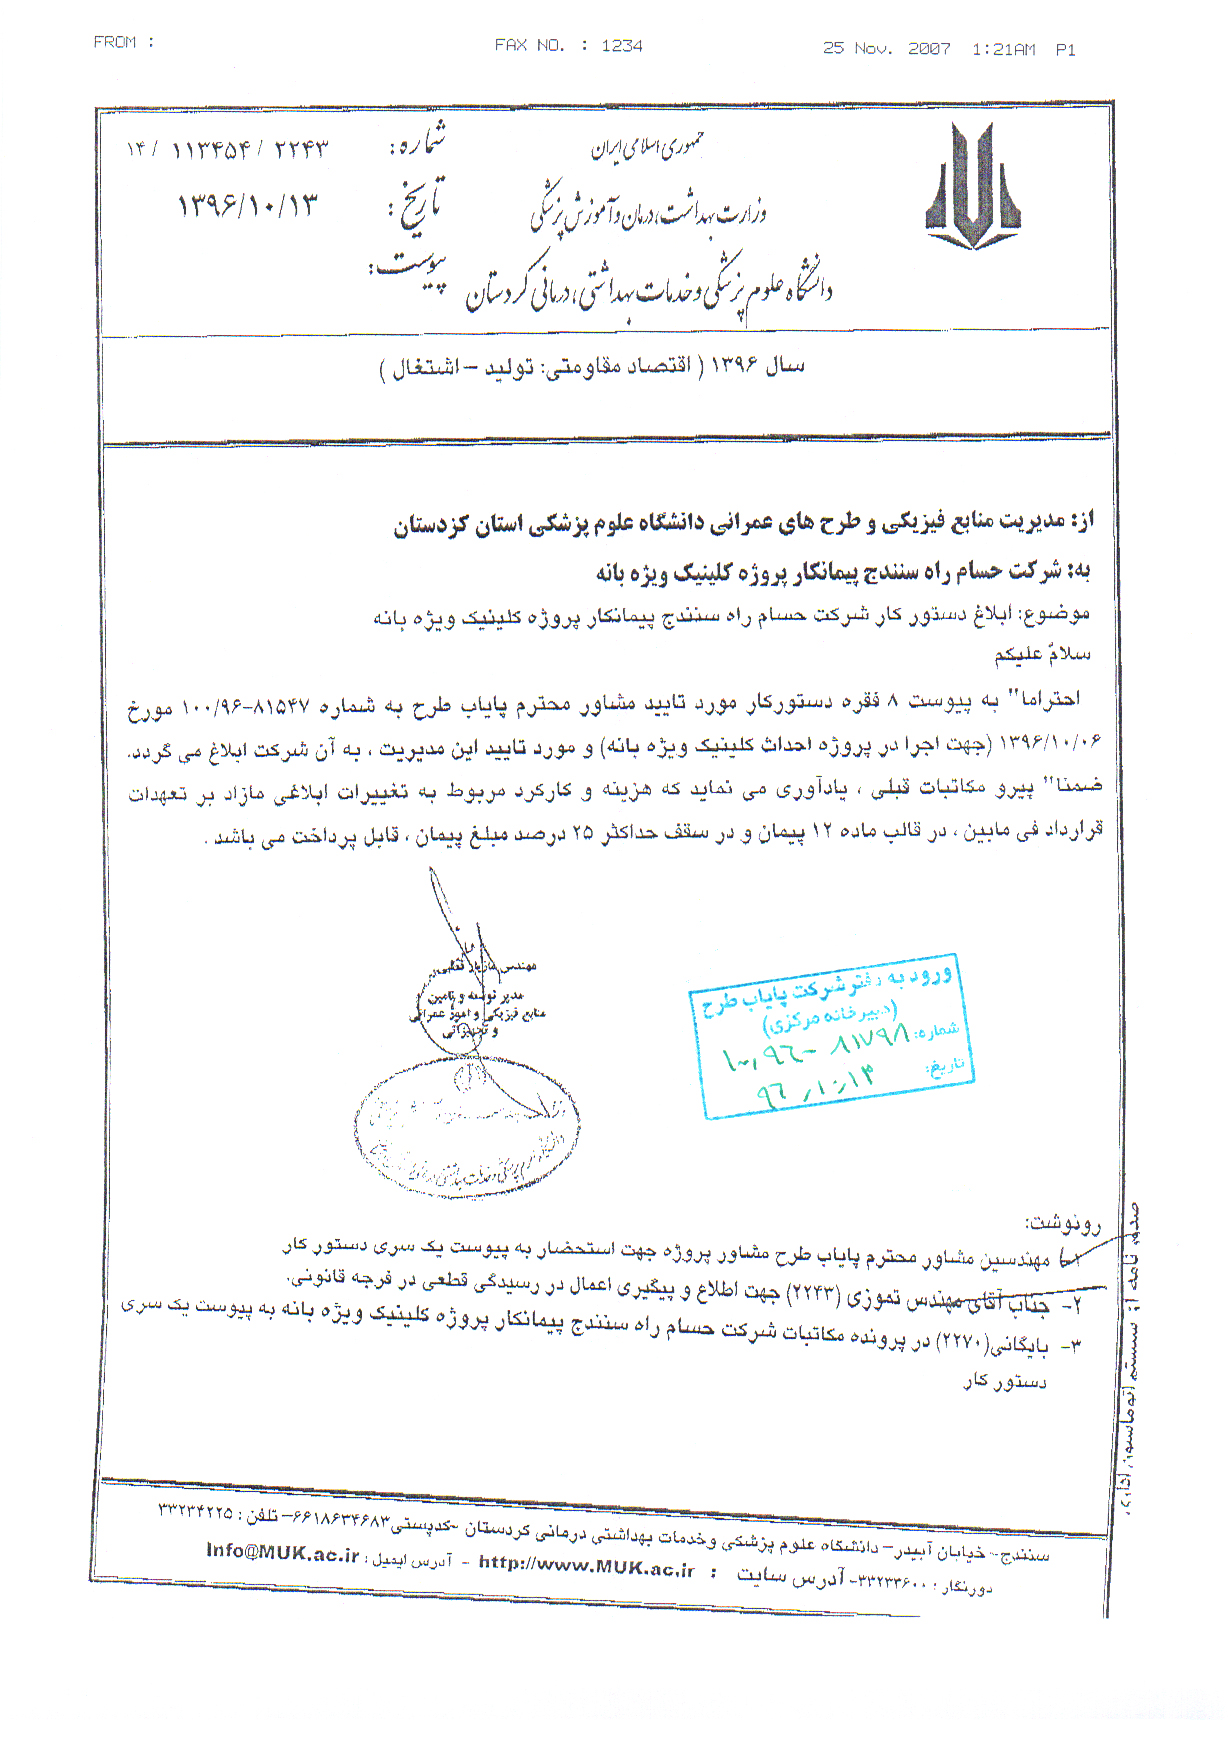 FROM :    FAX NO. : 1234    25 Nov. 2007  1:21AM  P1
جمهوری اسلامی ایران
وزارت بهداشت، درمان و آموزش پزشکی
دانشگاه علوم پزشکی و خدمات بهداشتی، درمانی کردستان
شماره: ۱۴/ ۱۱۳۴۵۴/ ۲۲۴۳
تاریخ: ۱۳۹۶/۱۰/۱۳
پیوست:
سال ۱۳۹۶ ( اقتصاد مقاومتی: تولید – اشتغال )
از: مدیریت منابع فیزیکی و طرح های عمرانی دانشگاه علوم پزشکی استان کردستان
به: شرکت حسام راه سنندج پیمانکار پروژه کلینیک ویژه بانه
موضوع: ابلاغ دستور کار شرکت حسام راه سنندج پیمانکار پروژه کلینیک ویژه بانه
سلام علیکم
احتراما" به پیوست ۸ فقره دستورکار مورد تایید مشاور محترم پایاب طرح به شماره ۸۱۵۴۷-۱۰۰/۹۶ مورخ
۱۳۹۶/۱۰/۰۶ (جهت اجرا در پروژه احداث کلینیک ویژه بانه) و مورد تایید این مدیریت ، به آن شرکت ابلاغ می گردد.
ضمنا" پیرو مکاتبات قبلی ، یادآوری می نماید که هزینه و کارکرد مربوط به تغییرات ابلاغی مازاد بر تعهدات
قرارداد فی مابین ، در قالب ماده ۱۲ پیمان و در سقف حداکثر ۲۵ درصد مبلغ پیمان ، قابل پرداخت می باشد .
مهندس مازیار
مدیر توسعه و تامین
منابع فیزیکی و امور عمرانی
و تجهیزاتی
ورود به دفتر شرکت پایاب طرح
(دبیرخانه مرکزی)
شماره: ۱۰۰,۹۶-۸۱۷۹۸
تاریخ: ۹۶,۱۰,۱۳
رونوشت:
۱- مهندسین مشاور محترم پایاب طرح مشاور پروژه جهت استحضار به پیوست یک سری دستور کار
۲- جناب آقای مهندس تموزی (۲۲۴۳) جهت اطلاع و پیگیری اعمال در رسیدگی قطعی در فرجه قانونی.
۳- بایگانی(۲۲۷۰) در پرونده مکاتبات شرکت حسام راه سنندج پیمانکار پروژه کلینیک ویژه بانه به پیوست یک سری
دستور کار
صدور نامه از سیستم اتوماسیون اداری
سنندج- خیابان آبیدر– دانشگاه علوم پزشکی وخدمات بهداشتی درمانی کردستان -کدپستی۶۶۱۸۶۳۴۶۸۳–تلفن : ۳۳۲۳۴۲۲۵
دورنگار : ۳۳۲۳۳۶۰۰- آدرس سایت : http://www.MUK.ac.ir - آدرس ایمیل : Info@MUK.ac.ir